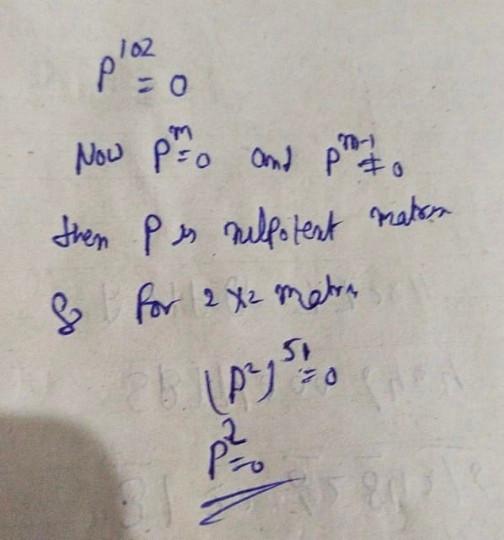 P^102 = 0
Now P^m = 0 and P^m-1 ≠ 0
then P is nilpotent matrix
So for 2 x 2 matrix
(P^2)^51 = 0
P^2 = 0